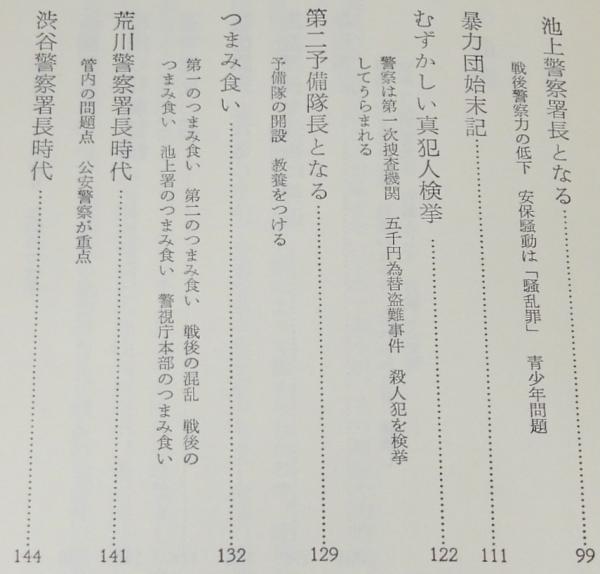 池上警察署長となる……………99
戦後警察力の低下　安保騒動は「騒乱罪」　青少年問題
暴力団始末記……………111
むずかしい真犯人検挙……………122
警察は第一次捜査機関　五千円為替盗難事件　殺人犯を検挙
してうらまれる
第二予備隊長となる……………129
予備隊の開設　教養をつける
つまみ食い……………132
第一のつまみ食い　第二のつまみ食い　戦後の混乱　戦後の
つまみ食い　池上署のつまみ食い　警視庁本部のつまみ食い
荒川警察署長時代……………141
管内の問題点　公安警察が重点
渋谷警察署長時代……………144